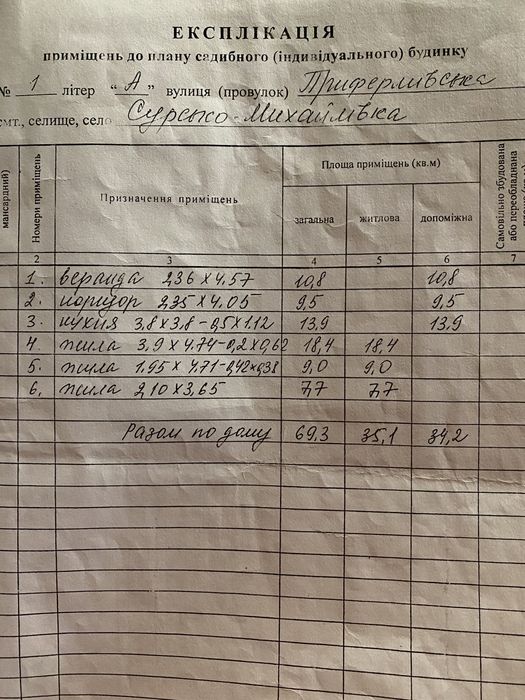 ЕКСПЛІКАЦІЯ
приміщень до плану садибного (індивідуального) будинку
№ 1 літер "А" вулиця (провулок)
смт., селище, село Сурсько-Михайлівка
мансардний)
Номери приміщень
Призначення приміщень
Площа приміщень (кв.м)
загальна житлова допоміжна
Самовільно збудована або переобладнана
2 3 4 5 6 7
1. веранда 2,36 х 4.57 10,8 10,8
2. коридор 2,35 х 4.05 9,5 9,5
3. кухня 3,8 х 3,8 - 0,5 х 1.12 13,9 13,9
4. жила 3,9 х 4.74 - 0,2 х 0,62 18,4 18,4
5. жила 1.95 х 4.71 - 0,42 х 0,38 9,0 9,0
6. жила 2,10 х 3,65 7,7 7,7
Разом по дому 69,3 35,1 34,2